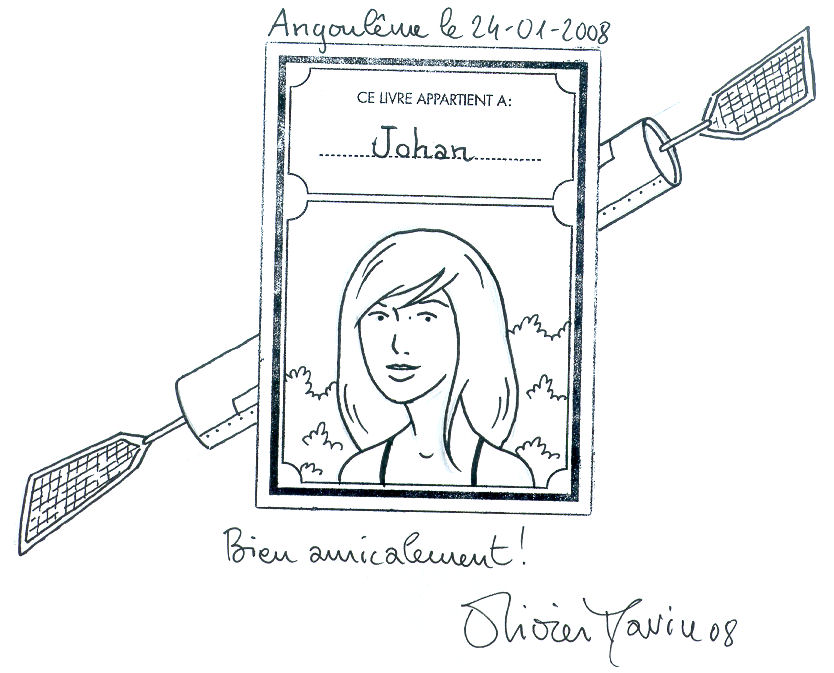 Angoulême le 24-01-2008
CE LIVRE APPARTIENT A:
Johan
Bien amicalement!
Olivier 08